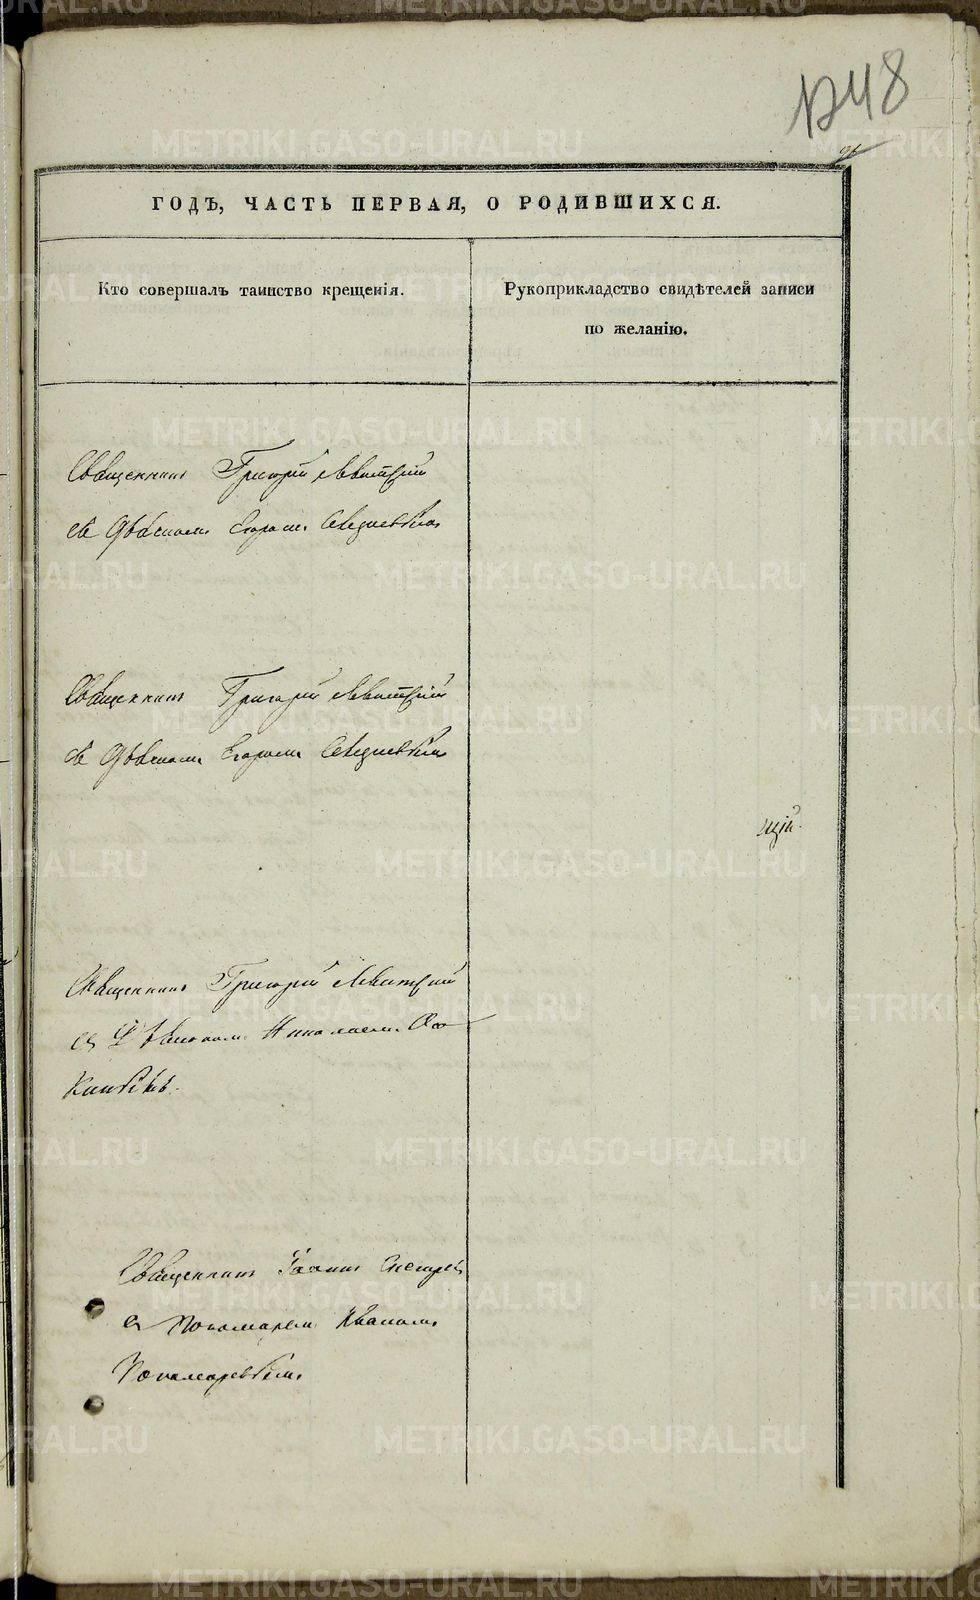 1248
ГОДЪ, ЧАСТЬ ПЕРВАЯ, О РОДИВШИХСЯ.
Кто совершалъ таинство крещенія.
Рукоприкладство свидѣтелей записи
по желанію.
Священникъ Григорій Левитскій
съ Дьякономъ Егоромъ
Священникъ Григорій Левитскій
съ Дьякономъ Егоромъ
щій.
Священникъ Григорій Левитскій
съ Николаемъ
Священникъ Іоаннъ
съ Пономаремъ Иваномъ
Пономаревымъ
METRIKI.GASO-URAL.RU